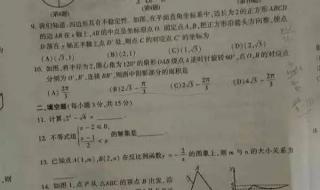 (第8题)
9. 我们知道:四边形具有不稳定性. 如图,在平面直角坐标系中,边长为2的正方形ABCD
的边AB在x轴上,AB的中点是坐标原点O.固定点A,B,把正方形沿箭头方向推,使点
D落在y轴正半轴上点D'处,则点C的对应点C'的坐标为
(A)(√3,1) (B)(2,1) (C)(1,√3) (D)(2,√3)
10. 如图,将半径为2,圆心角为120°的扇形OAB绕点A逆时针旋转60°,点O,B的对应点
分别为O',B',连接BB',则图中阴影部分的面积是
(A) 2π/3 (B) 2√3 - π/3 (C) 2√3 - 2π/3 (D) 4√3 - 2π/3
二、填空题(每小题3分,共15分)
11. 计算:2³ - √4 =
12. 不等式组 的解集是
13. 已知点A(1,m),B(2,n)在反比例函数y=-2/x的图象上,则m与n的大小关系为
14. 如图1,点P从△ABC的顶点B出发,沿